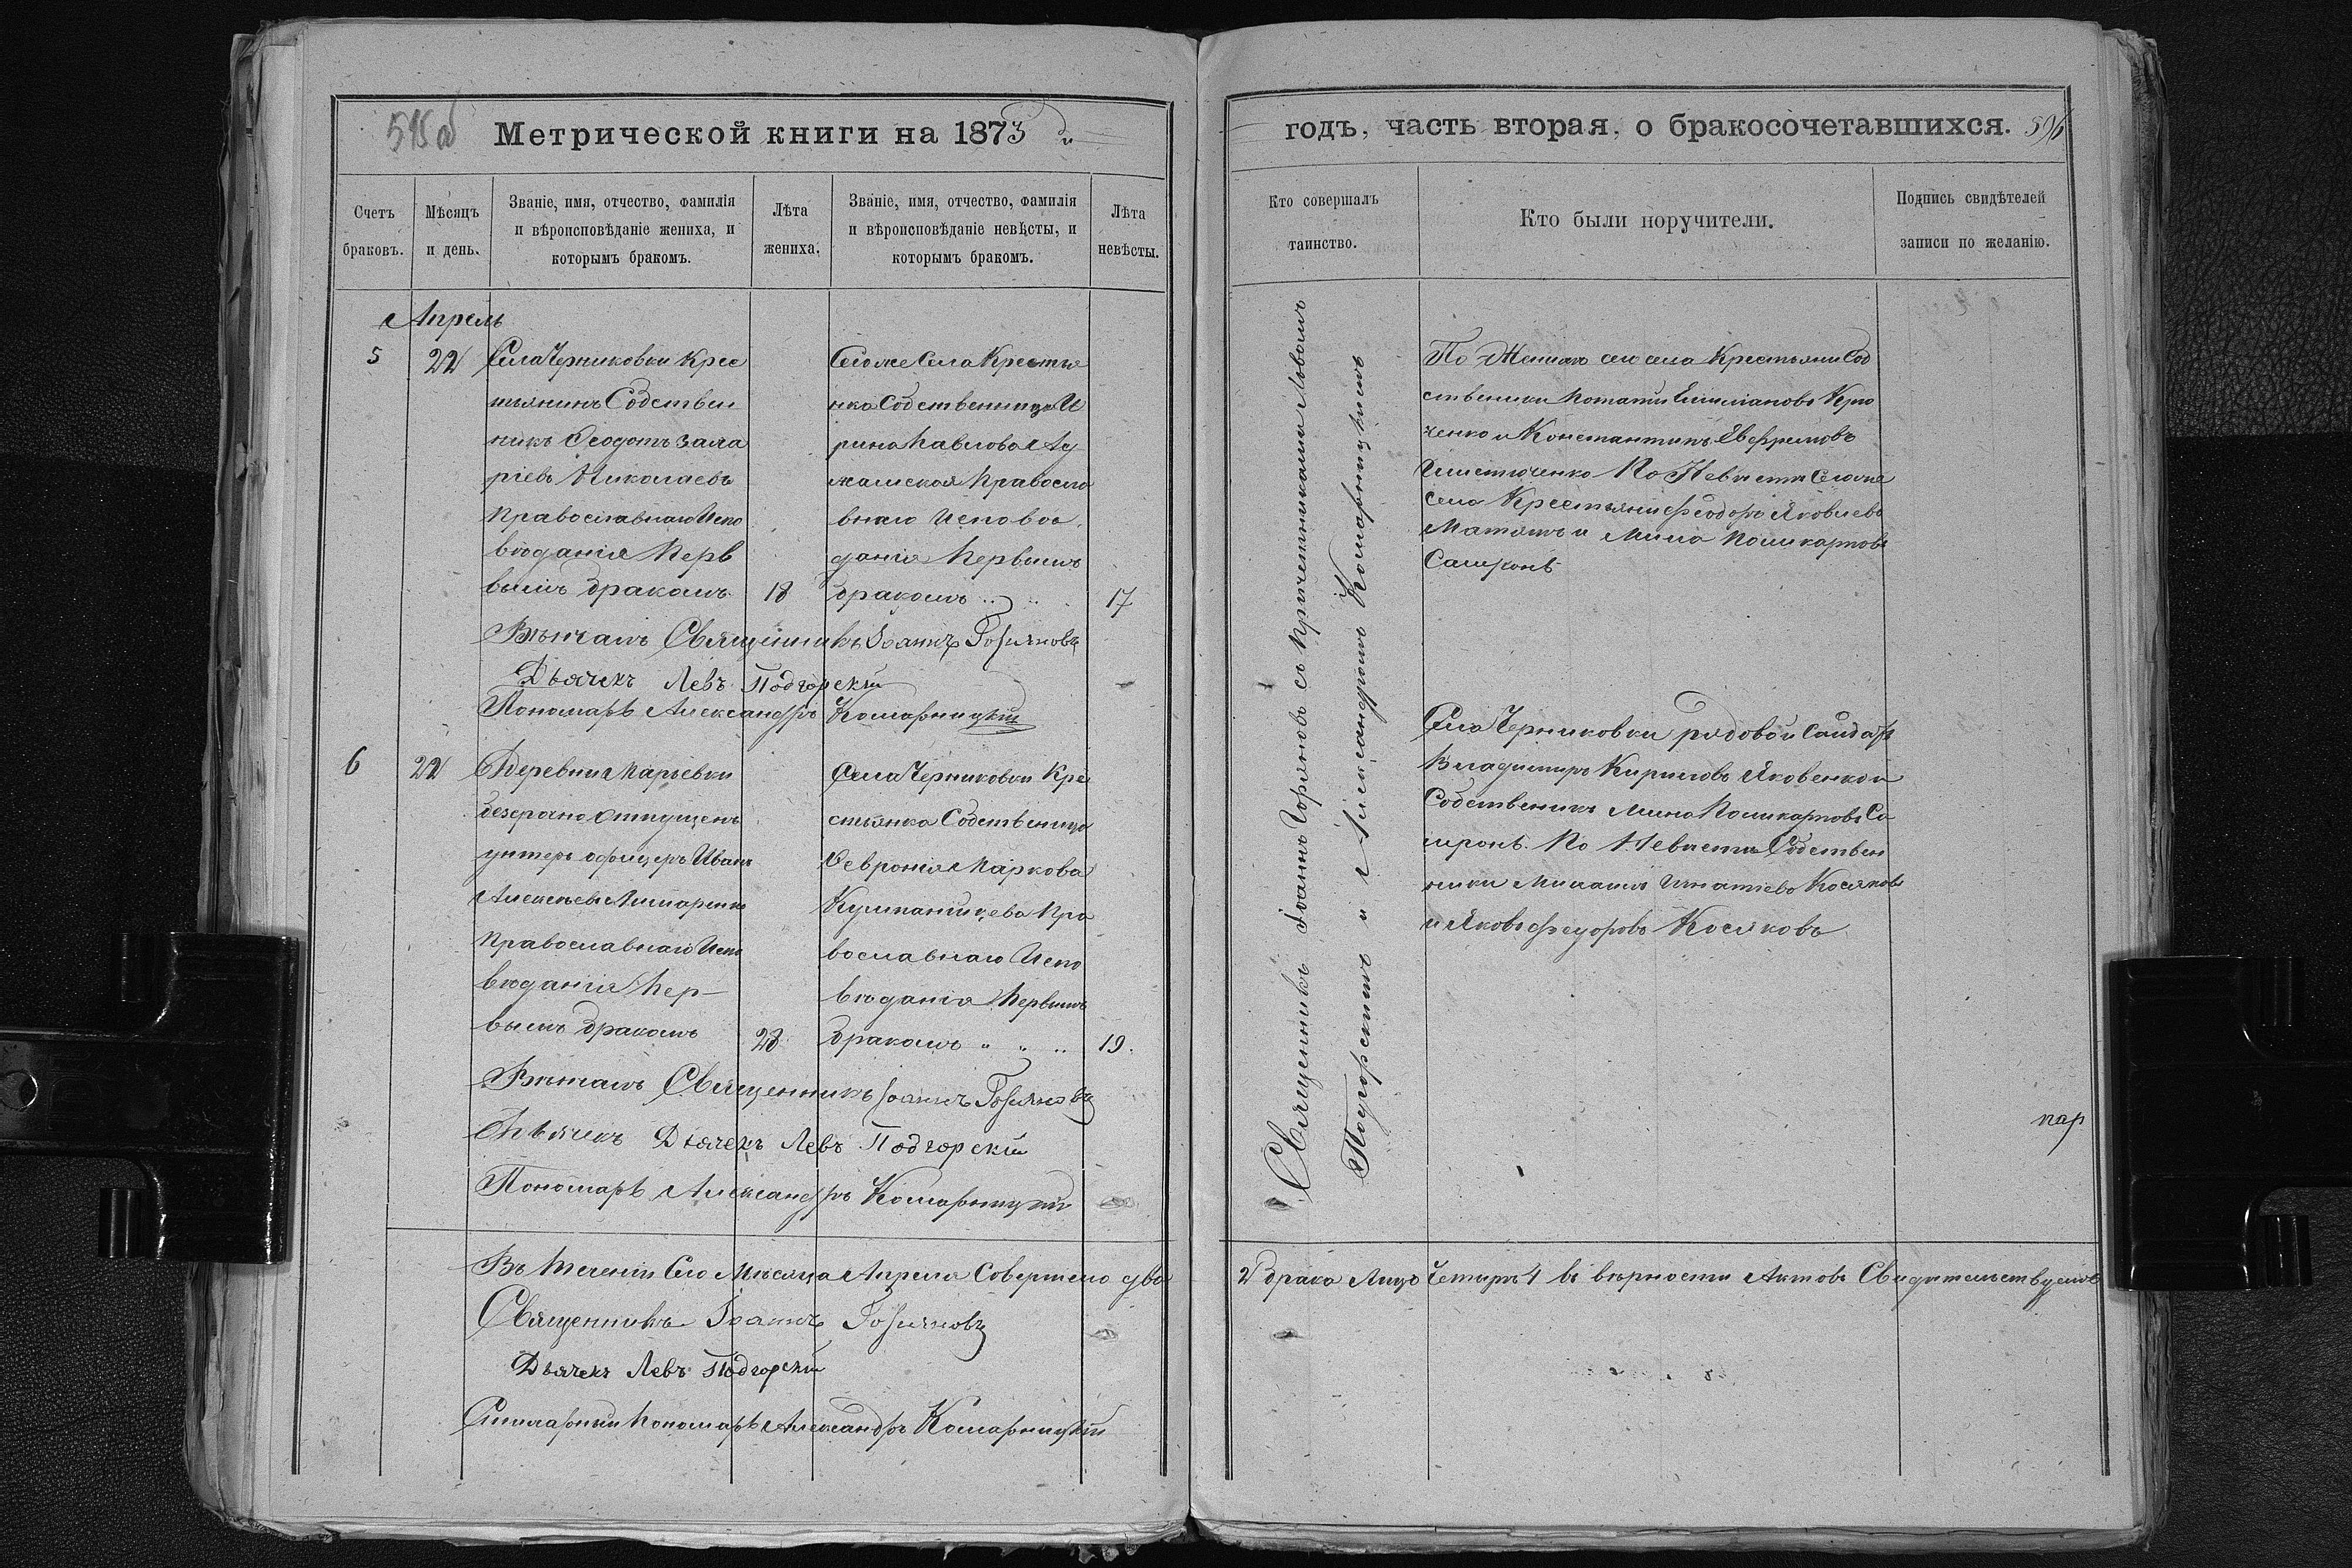 Метрической книги на 1873 й
Счетъ браковъ.
Мѣсяцъ и день.
Званіе, имя, отчество, фамилія
и вѣроисповѣданіе жениха, и
которымъ бракомъ.
Лѣта
жениха.
Званіе, имя, отчество, фамилія
и вѣроисповѣданіе невѣсты, и
которымъ бракомъ.
Лѣта
невѣсты.
Апрель
5
22
Села Черниковки Крес
тьянинъ Собствен
никъ Феодотъ
Николаевъ
Православнаго Испо
вѣданія Перв
вымъ бракомъ
18
Сегоже Села Крестья
нка Собственница И
рина Павлова
Правосла
внаго Исповѣ
данія Первымъ
бракомъ
17
Вѣнчалъ Священникъ Іоаннъ
Дьячекъ Левъ Подгорскій
Пономарь Александръ Комарницкій
6
22
Деревни Марьевки
безсрочно Отпущенъ
унтеръ офицеръ Иванъ
Алексѣевъ
Православнаго Испо
вѣданія Пер-
вымъ бракомъ
28
Села Черниковки Кре
стьянка Собственница
Февронія Маркова
Пра
вославнаго Испо
вѣданія Первымъ
бракомъ
19.
Священникъ Іоаннъ
Дьячекъ Дьячекъ Левъ Подгорскій
Пономарь Александръ Комарницкій
Въ теченіи Сего Мѣсяца Апреля Совершено два
Священникъ Іоаннъ
Дьячекъ Левъ Подгорскій
Пономарь Александръ Комарницкій
годъ, часть вторая, о бракосочетавшихся. 596
Кто совершалъ
таинство.
Кто были поручители.
Подпись свидѣтелей
записи по желанію.
Священникъ Іоаннъ съ Причетниками Львомъ
Подгорскимъ и Александромъ Комарницкимъ
По Женихѣ сего села Крестьяни Соб
ственики Потапій Емилиановъ
ченко и Константинъ Евфремовъ
По Невѣсти Сегоже
села Крестьяни Феодоръ Яковлевъ
и Мина Поликарповъ
Села Черниковки рядовой
Владимиръ Кириловъ Яковенко и
Собственикъ Мина Поликарповъ
По Невѣсти Собствен
ники Игнатіевъ Косяковъ
и Яковъ Федоровъ Косяковъ
2 брака Лицъ Четыри 4 въ вѣрности Актовъ Свидительствуемъ